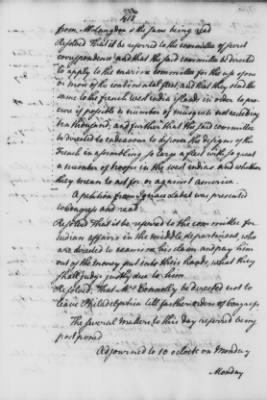 from Mr Langdon & the same being read
Resolved That it be referred to the committee of secret
correspondence and that the said committee be directed
to apply to the marine committee for the use of one
or more of the continental fleet, and that they send the
same to the french west india islands in order to pro
cure if possible a number of musquets not exceeding
ten thousand, and further that the said committee
be directed to endeavour to discover the designs of the
French in assembling so large a fleet with so great
a number of troops in the west indies and whether
they mean to act for or against america
A petition from Ignace Labat was presented
to Congress and read
Resolved That it be referred to the committee for
indian affairs in the middle department, who
are directed to examine his claim and pay him
out of the money put into their hands, what they
shall judge justly due to him.
Resolved, That Mr Connolly be directed not to
leave Philadelphia till farther orders of Congress.
The several matters to this day referred being
postponed
Adjourned to 10 o clock on Monday
Monday